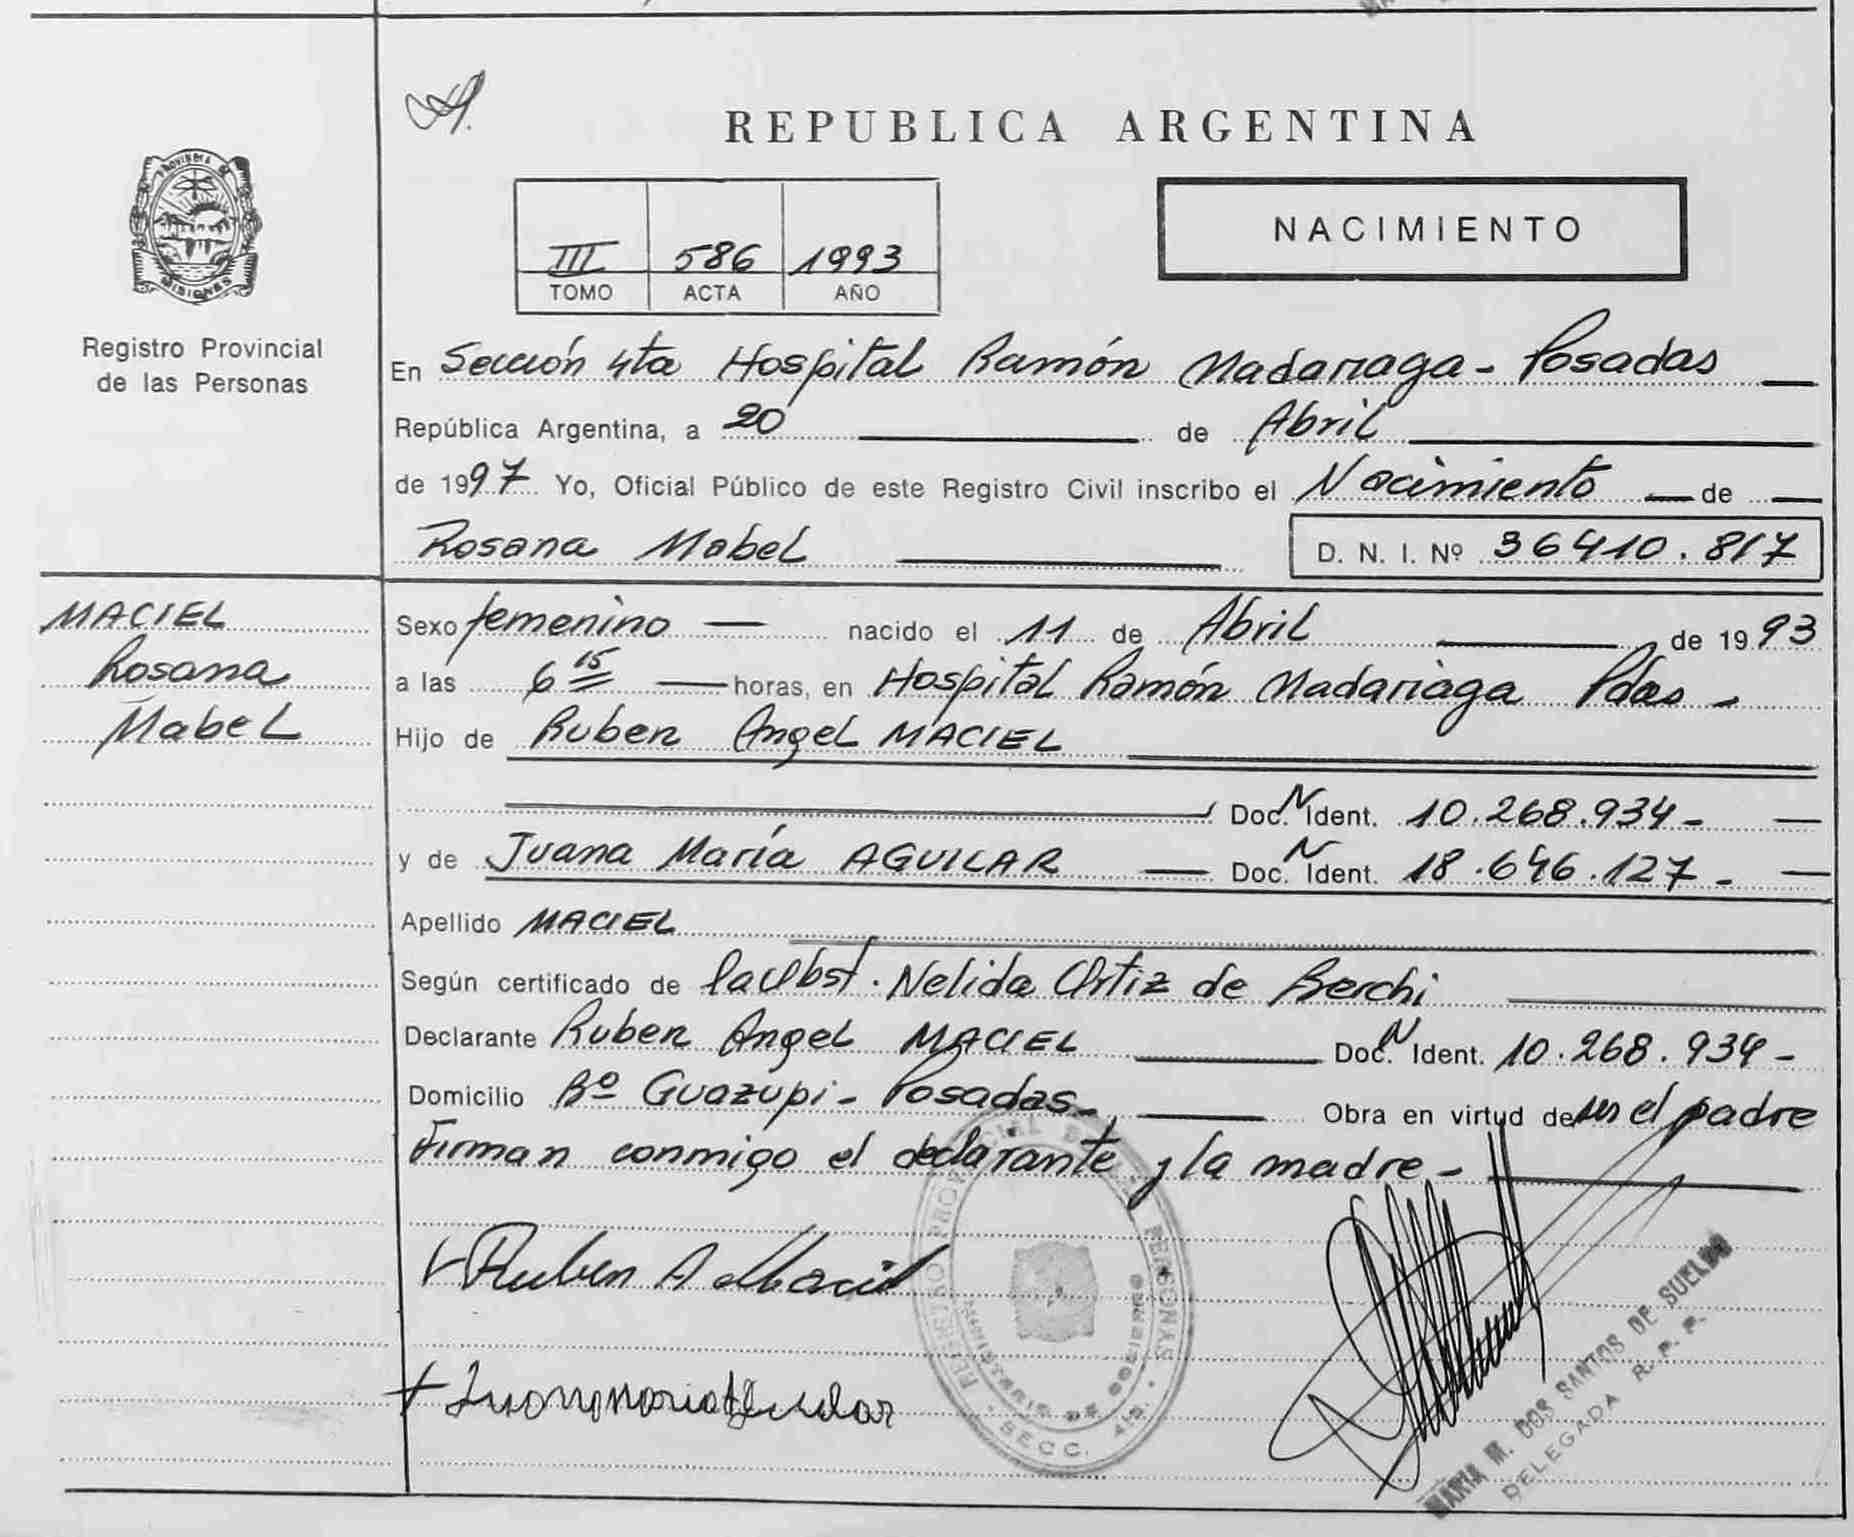 REPUBLICA ARGENTINA
PROVINCIA DE
MISIONES
Registro Provincial
de las Personas
III 586 1993
TOMO ACTA AÑO
NACIMIENTO
En Sección 4ta Hospital Ramón Madariaga - Posadas
República Argentina, a 20 de Abril
de 1997 Yo, Oficial Público de este Registro Civil inscribo el Nacimiento de
Rosana Mabel D. N. I. Nº 36410.817
MACIEL
Rosana
Mabel
Sexo femenino nacido el 11 de Abril de 1993
a las 6 15 horas, en Hospital Ramón Madariaga Pdas -
Hijo de Ruben Angel MACIEL
Doc. N Ident. 10.268.934 -
y de Juana María AGUILAR Doc. N Ident. 18.646.127 -
Apellido MACIEL
Según certificado de la Obst. Nelida Ortiz de Berchi
Declarante Ruben Angel MACIEL Doc. N Ident. 10.268.934 -
Domicilio Bº Guazupi - Posadas - Obra en virtud de ser el padre
Firman conmigo el declarante y la madre -
Ruben A Maciel
Juana Maria Aguilar
REGISTRO PROVINCIAL DE LAS PERSONAS
MINISTERIO DE GOBIERNO
SECC. 4ta.
MARIA M. DOS SANTOS DE SUELDO
DELEGADA R. P. P.